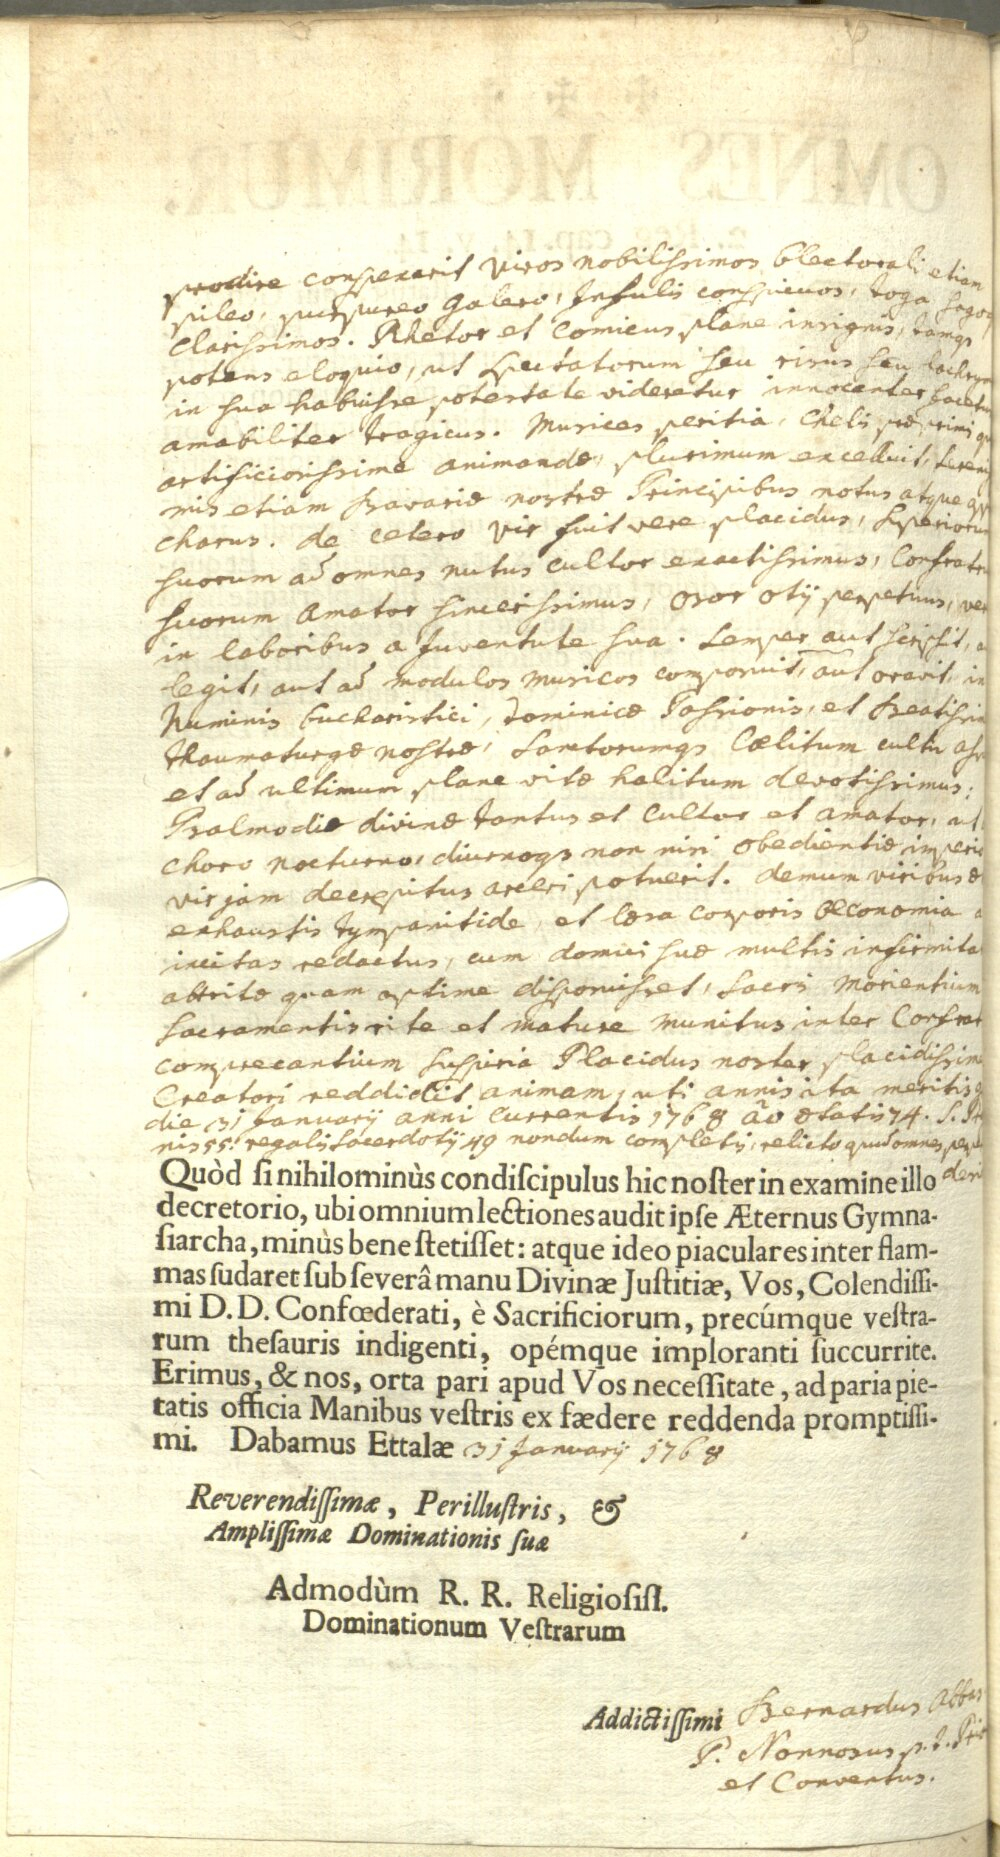 prodire conspexerit viros nobilissimos Electorali etiam
pileo, purpureo galero, Infulis conspicuos, toga sagoq
clarissimos. Rhetor et Comicus plane insignis, tamqs
potens eloquio, ut Spectatorum seu risus seu lachrym
in sua habuisse potestate videretur innocenter facetus
amabiliter tragicus. Musices peritia, Chelis præprimis
artificiosissime animandæ, plurimum excelluit, Sereniss
mis etiam Bavariæ nostræ Principibus notus atque
charus. de cetero vir fuit vere placidus, Superiorum
suorum ad omnes nutus cultor exactissimus, Confratru
suorum Amator sincerissimus, osor otij perpetuus,
in laboribus a Juventute sua. Semper aut scripsit,
legit, aut ad modulos musicos composuit, aut oravit, in
Numinis Eucharistici, Dominicæ Passionis, et Beatissim
thaumaturgæ nostræ, Sanctorumqs Cœlitum cultu
et ad ultimum plane vitæ halitum devotissimus:
Psalmodiæ divinæ tantus et Cultor et amator, ut
choro nocturno, diurnoqs non nisi obedientiæ imperio
vir jam decrepitus arceri potuerit. demum viribus
exhaustis tympanitide, et læsa corporis œconomia
incitas redactus, cum domui suæ multis infirmita
attritæ quam optime disposuisset, Sacris morientium
Sacramentis rite et mature munitus inter Confrat
comprecantium suspiria Placidus noster placidissime
Creatori reddidit animam, uti annis ita meritis
die 31 Januarij anni currentis 1768 aō ætatis 74. S.
nis 55. regalis Sacerdotij 49 nondum completis, relicto qui omnes
Quòd si nihilominùs condiſcipulus hic noſter in examine illo
decretorio, ubi omnium lectiones audit ipſe Æternus Gymna-
ſiarcha, minùs bene ſtetiſſet: atque ideo piaculares inter flam-
mas ſudaret ſub ſeverâ manu Divinæ Juſtitiæ, Vos, Colendiſſi-
mi D. D. Confœderati, è Sacrificiorum, precúmque veſtra-
rum theſauris indigenti, opémque imploranti ſuccurrite.
Erimus, & nos, orta pari apud Vos neceſſitate, ad paria pie-
tatis officia Manibus veſtris ex fædere reddenda promptiſſi-
mi. Dabamus Ettalæ 31 Januarij 1768
Reverendiſſimæ, Perilluſtris, &
Ampliſſimæ Dominationis ſuæ
Admodùm R. R. Religioſiſſ.
Dominationum Veſtrarum
Addictiſſimi Bernardus Abbas
P. Nonnosus p. t. Prior
et Conventus.